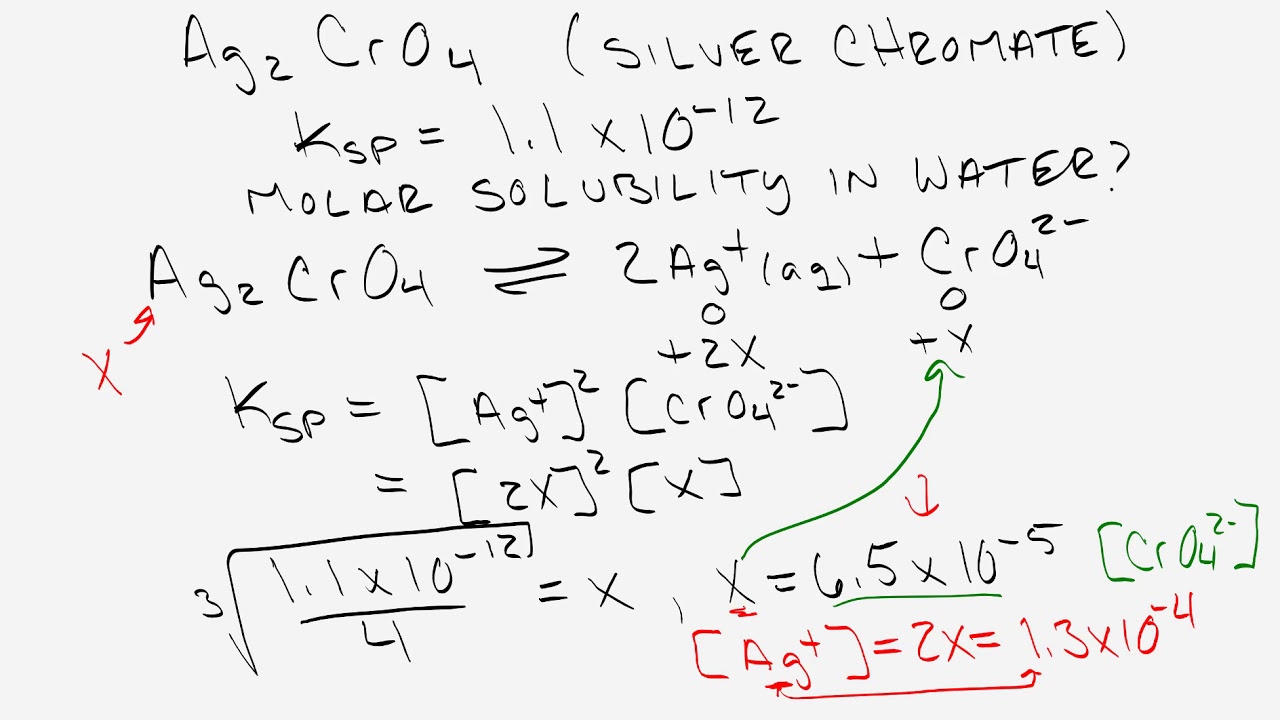 Ag₂CrO₄ (SILVER CHROMATE)
Ksp = 1.1 x 10⁻¹²
MOLAR SOLUBILITY IN WATER?
Ag₂CrO₄ ⇌ 2Ag⁺(aq) + CrO₄²⁻
0 0
X +2X +X
Ksp = [Ag⁺]² [CrO₄²⁻]
= [2X]² [X]
∛(1.1 x 10⁻¹² / 4) = X , X = 6.5 x 10⁻⁵ [CrO₄²⁻]
[Ag⁺] = 2X = 1.3 x 10⁻⁴